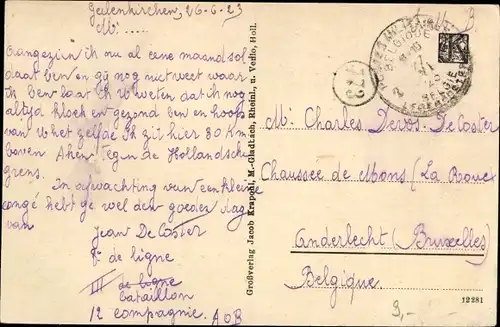 Geilenkirchen, 26-6-23
M:.....
Aangezien ik nu al eene maand sol
daat ben en gij nog niet weet waar
ik ben laat ik U weten dat ik nog
altijd kloek en gezond ben en hoop
van U het zelfde Ik zit hier 80 Km
boven Aken tegen de Hollandsch
grens.
In afwachting van een kleine
congé hebt ge wel den goeden dag
van
Jean De Coster
de ligne
III de ligne
bataillon
12 compagnie. A O B
Großverlag Jacob Krapohl, M.-Gladbach, Rheinl., u. Venlo, Holl.
M. Charles Devos. De Coster
Chaussée de Mons (La Roue)
Anderlecht (Bruxelles)
Belgique.
12281
9,-